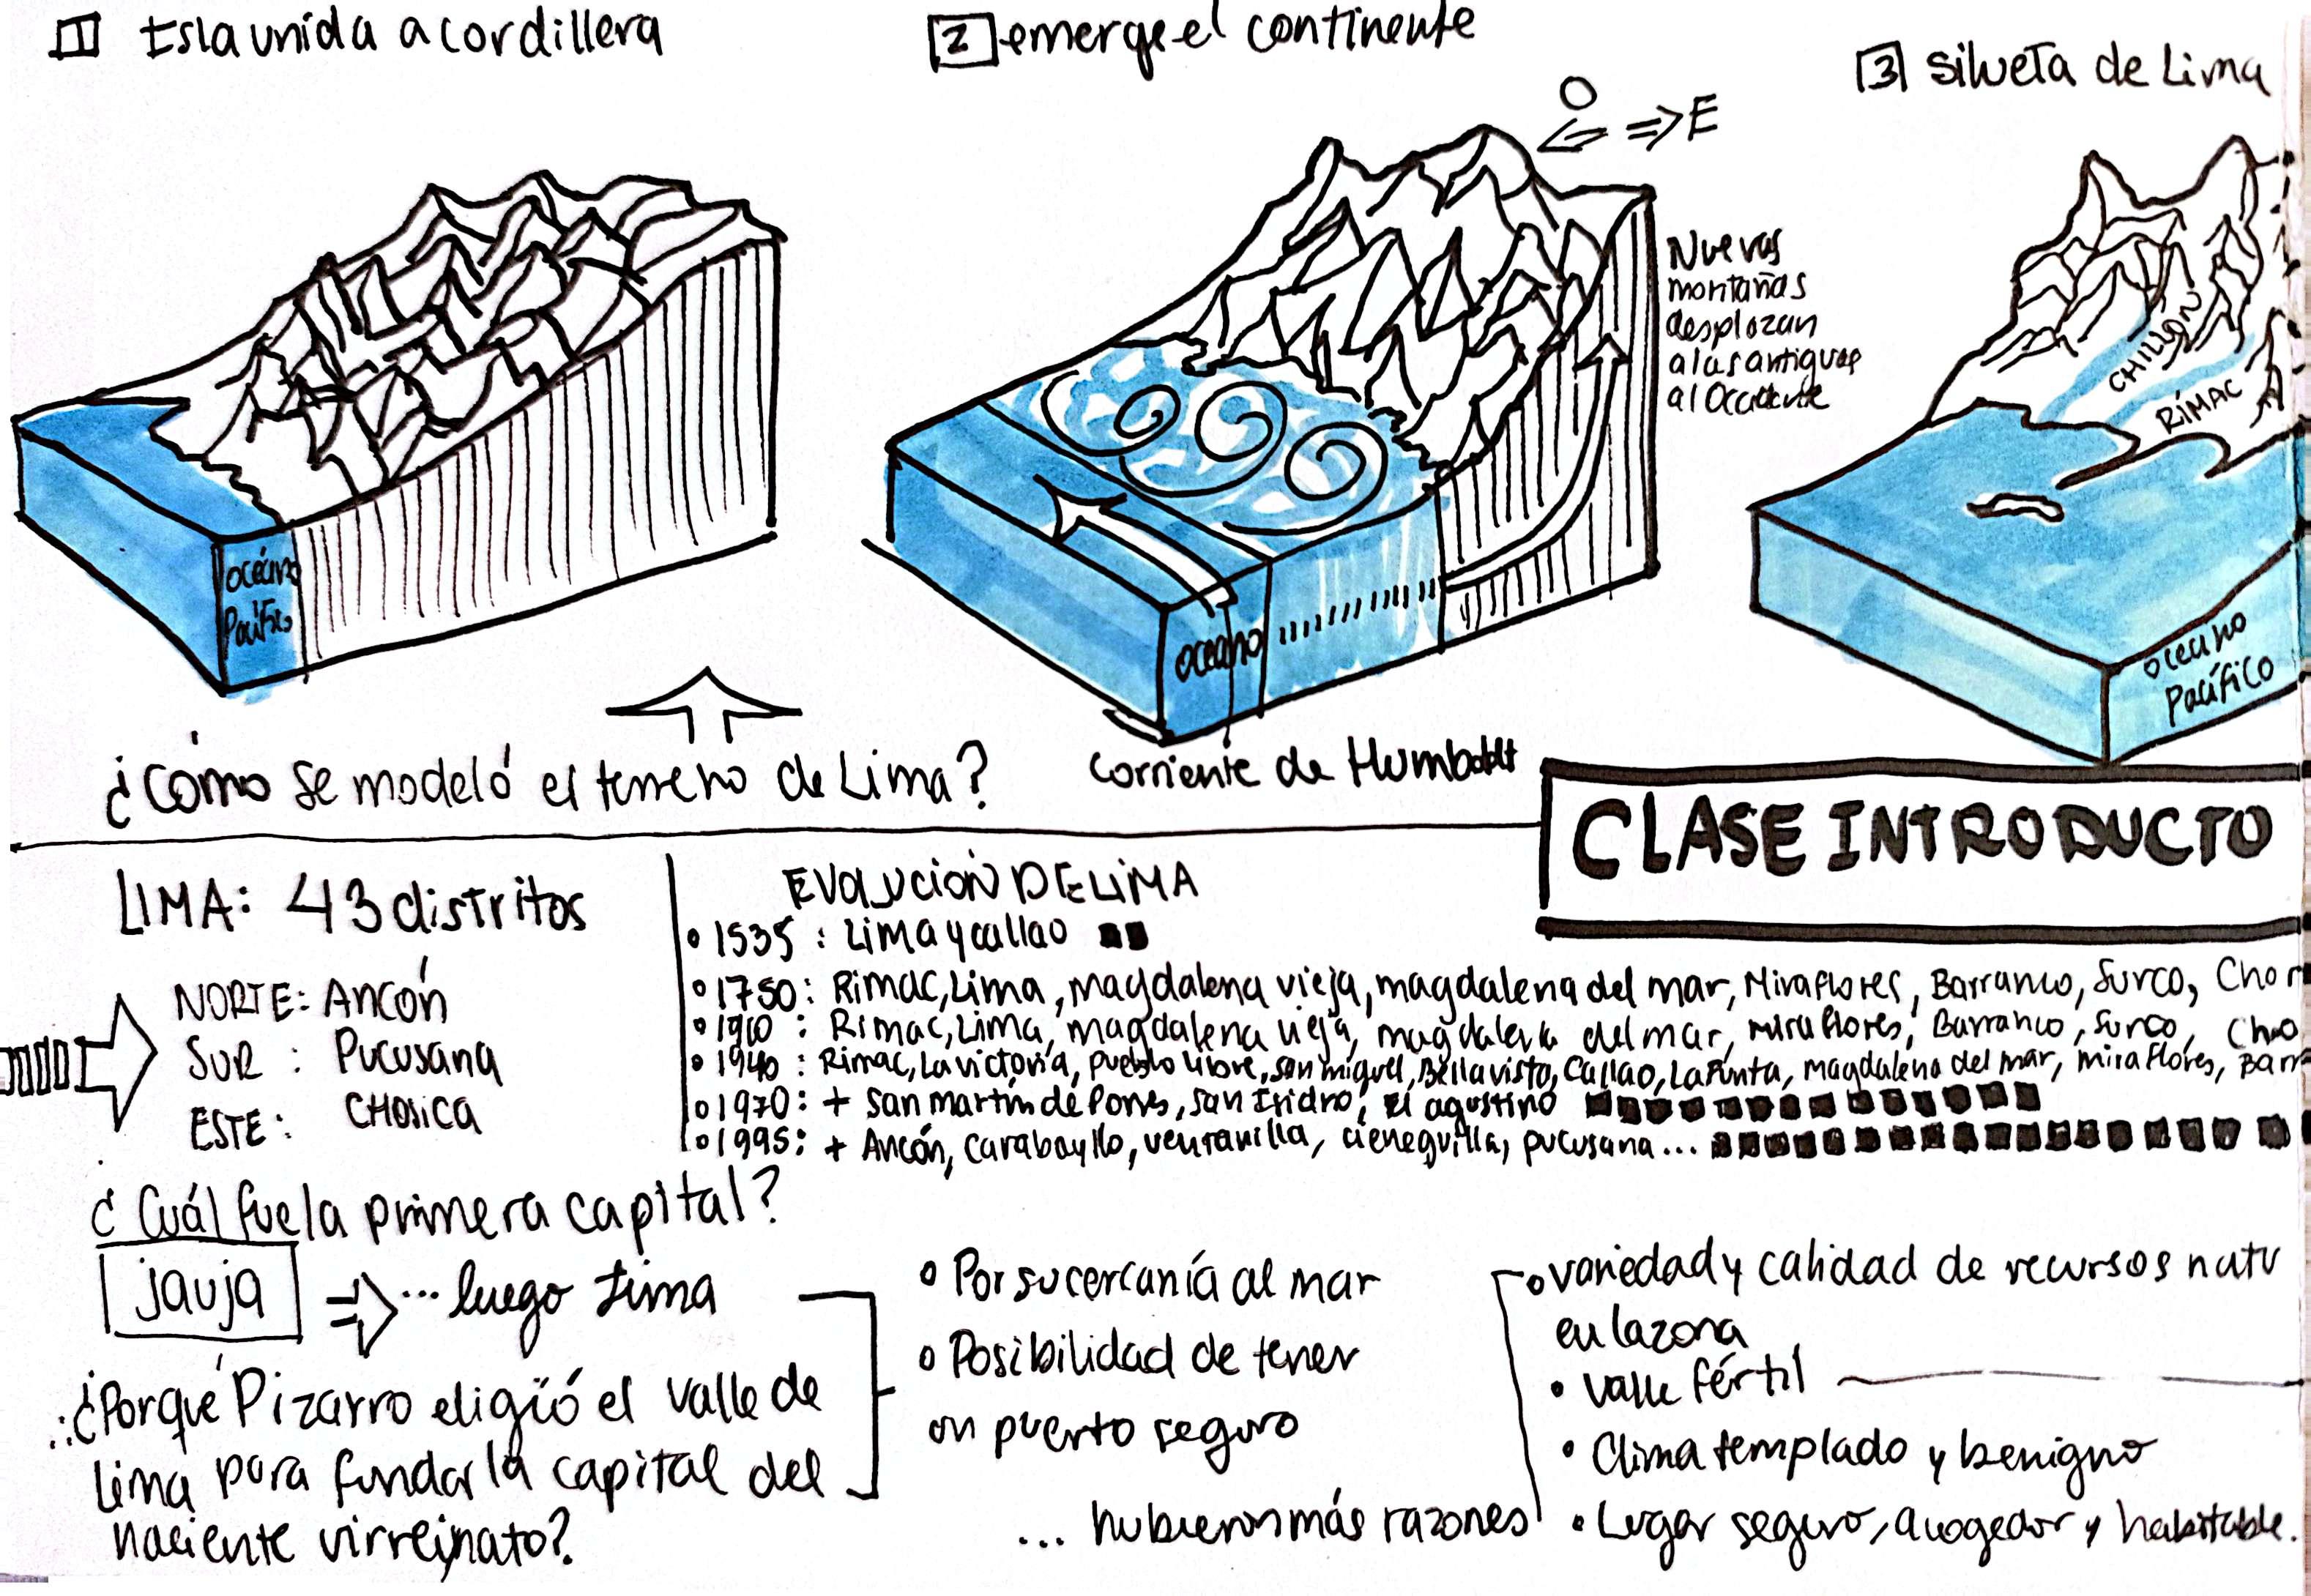 1 Isla unida a cordillera
2 emerge el continente
3 silueta de Lima
O
E
Nuevas
montañas
desplazan
a las antiguas
al Occidente
CHILLÓN
RÍMAC
océano
Pacífico
océano
océano
Pacífico
corriente de Humboldt
¿cómo se modeló el terreno de Lima?
CLASE INTRODUCTO
LIMA: 43 distritos
NORTE: ANCÓN
SUR : PUCUSANA
ESTE: CHOSICA
EVOLUCIÓN DE LIMA
1535: Lima y callao
1750: Rimac, Lima, magdalena vieja, magdalena del mar, Miraflores, Barranco, Surco, Chor
1910: Rimac, Lima, magdalena vieja, magdalena del mar, miraflores, Barranco, Surco, Cho
1940: Rimac, La victoria, pueblo libre, san miguel, Bellavista, Callao, La Punta, Magdalena del mar, miraflores, Barr
1970: + san martín de Porres, San Isidro, El agustino
1995: + Ancón, carabayllo, ventanilla, cieneguilla, pucusana...
¿Cuál fue la primera capital?
jauja
... luego Lima
∴ ¿Porqué Pizarro eligió el valle de
Lima para fundar la capital del
naciente virreinato?
Por su cercanía al mar
Posibilidad de tener
un puerto seguro
... hubieron más razones
variedad y calidad de recursos natu
en la zona
valle fértil
Clima templado y benigno
Lugar seguro, acogedor y habitable.